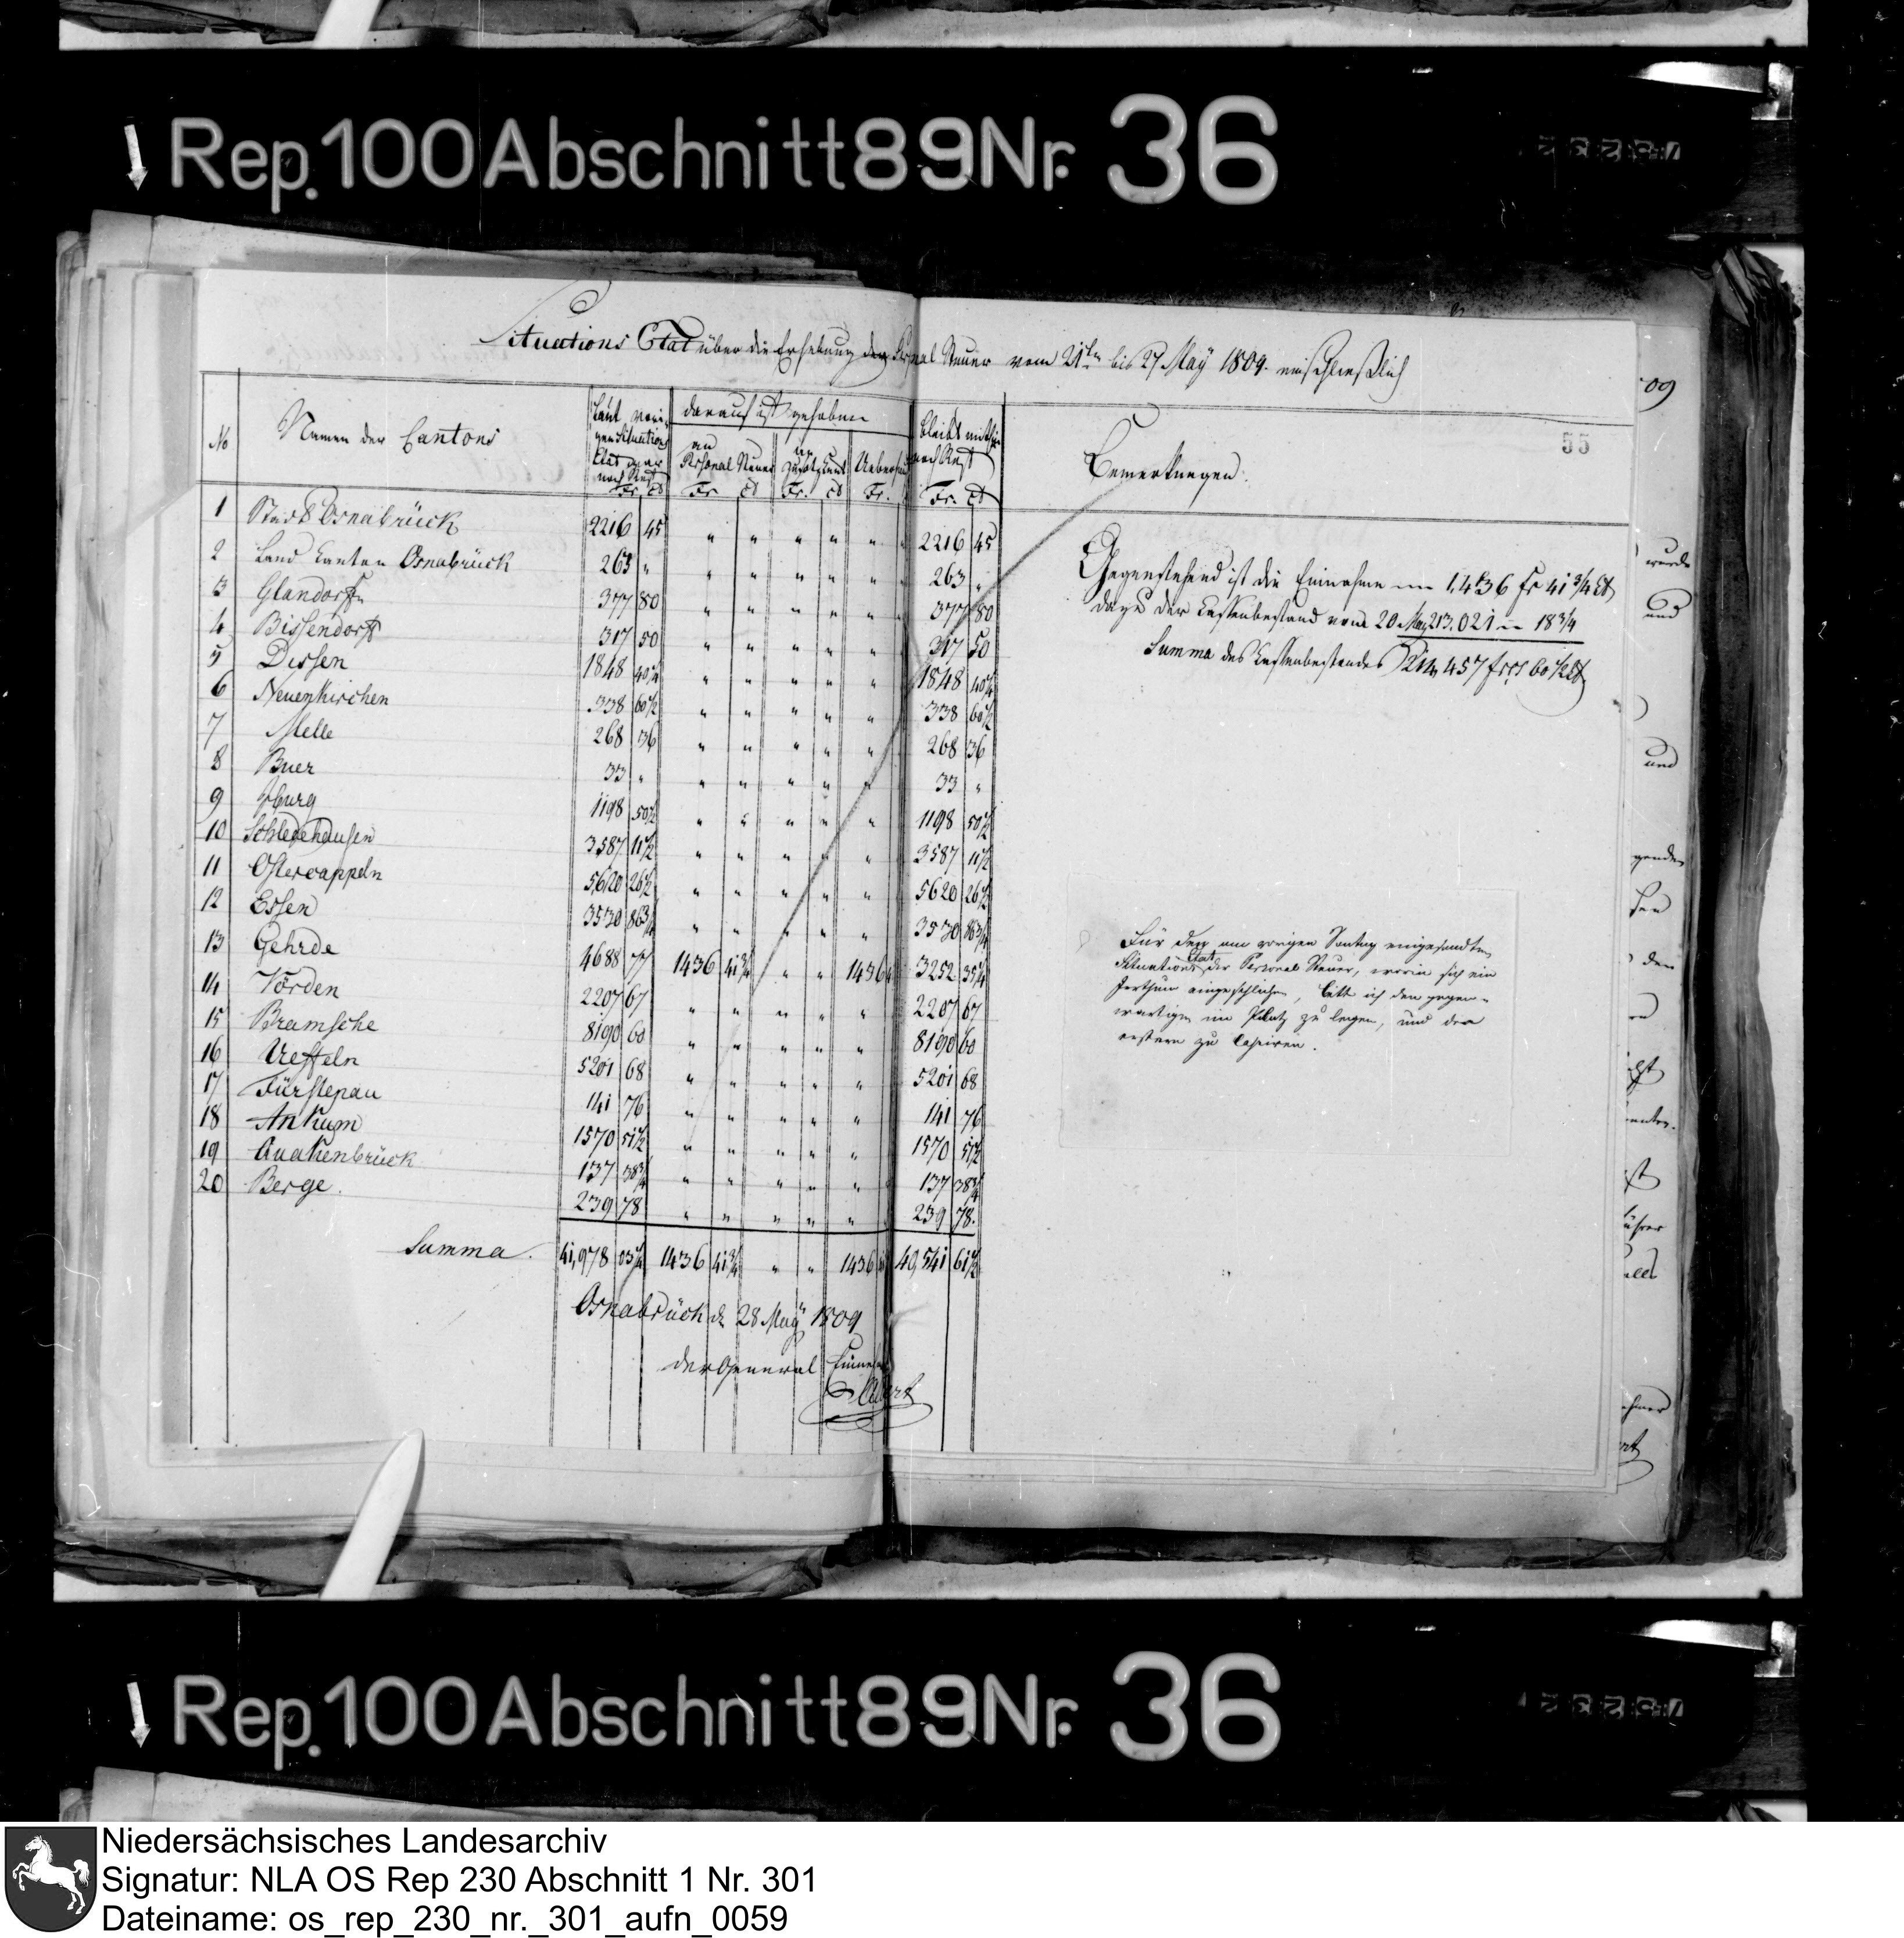 Rep. 100 Abschnitt 89 Nr. 36
Situations Etat über die Erhebung der Personal Steuer vom 21ten bis 27 May 1809. einschließlich
55
No
Namen der Cantons
Laut vori-
gen Situations
Etat war
noch Rest
Fr. ct
darauf ist gehoben
an
Personal Steuer
Fr ct
an
Zusatz Cent
Fr. ct
Fr.
bleibt mithin
noch Rest
Fr. ct
Bemerkungen.
1 Stadt Osnabrück 2216 45 " " " " " 2216 45
2 Land Canton Osnabrück 263 " " " " " " 263 "
3 Glandorf 377 80 " " " " " 377 80
4 Bissendorf 317 50 " " " " " 317 50
5 Dissen 1848 40 1/4 " " " " " 1848 40 1/4
6 Neuenkirchen 338 60 1/2 " " " " " 338 60 1/2
7 Melle 268 36 " " " " " 268 36
8 Buer 33 " " " " " " 33 "
9 Iburg 1198 50 1/2 " " " " " 1198 50 1/2
10 Schledehausen 3587 11 1/2 " " " " " 3587 11 1/2
11 Ostercappeln 5620 26 1/2 " " " " " 5620 26 1/2
12 Essen 3530 86 3/4 " " " " " 3530 86 3/4
13 Gehrde 4688 77 1436 41 3/4 " " 1436 3252 35 1/4
14 Vörden 2207 67 " " " " " 2207 67
15 Bramsche 8190 60 " " " " " 8190 60
16 Ueffeln 5201 68 " " " " " 5201 68
17 Fürstenau 141 76 " " " " " 141 76
18 Ankum 1570 51 1/2 " " " " " 1570 51 1/2
19 Quakenbrück 137 38 3/4 " " " " " 137 38 3/4
20 Berge. 239 78 " " " " " 239 78.
Summa. 41,978 03 1/4 1436 41 3/4 " " 1436 40,541 61 1/2
Osnabrück d 28 May 1809
der General Einnehmer
Gegenstehend ist die Einnahme 1,436 Fr 41 3/4 Ct
dazu der Cassenbestand vom 20 May 213.021 - 18 3/4
Summa des Cassenbestandes 214,457 frcs 60 1/2 Ct
Für den am vorigen Sontag eingesandten
Situations Etat der Personal Steuer, worin sich ein
Irrthum eingeschlichen, bitte ich den gegen-
wärtigen im Platz zu legen, und den
erstern zu Cassiren.
09
wurde
und
und
den
Rep. 100 Abschnitt 89 Nr. 36
Niedersächsisches Landesarchiv
Signatur: NLA OS Rep 230 Abschnitt 1 Nr. 301
Dateiname: os_rep_230_nr._301_aufn_0059